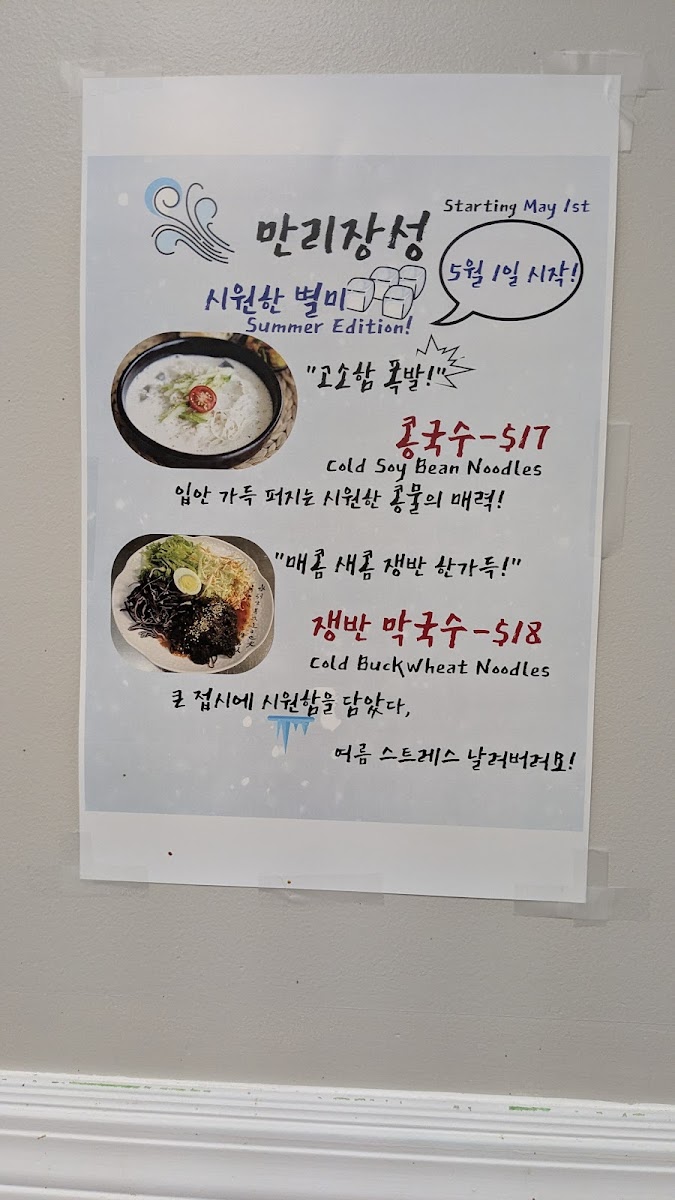 Starting May 1st
만리장성
5월 1일 시작!
시원한 별미
Summer Edition!
"고소함 폭발!"
콩국수-$17
Cold Soy Bean Noodles
입안 가득 퍼지는 시원한 콩물의 매력!
"매콤 새콤 쟁반 한가득!"
쟁반 막국수-$18
Cold Buckwheat Noodles
큰 접시에 시원함을 담았다,
여름 스트레스 날려버려요!